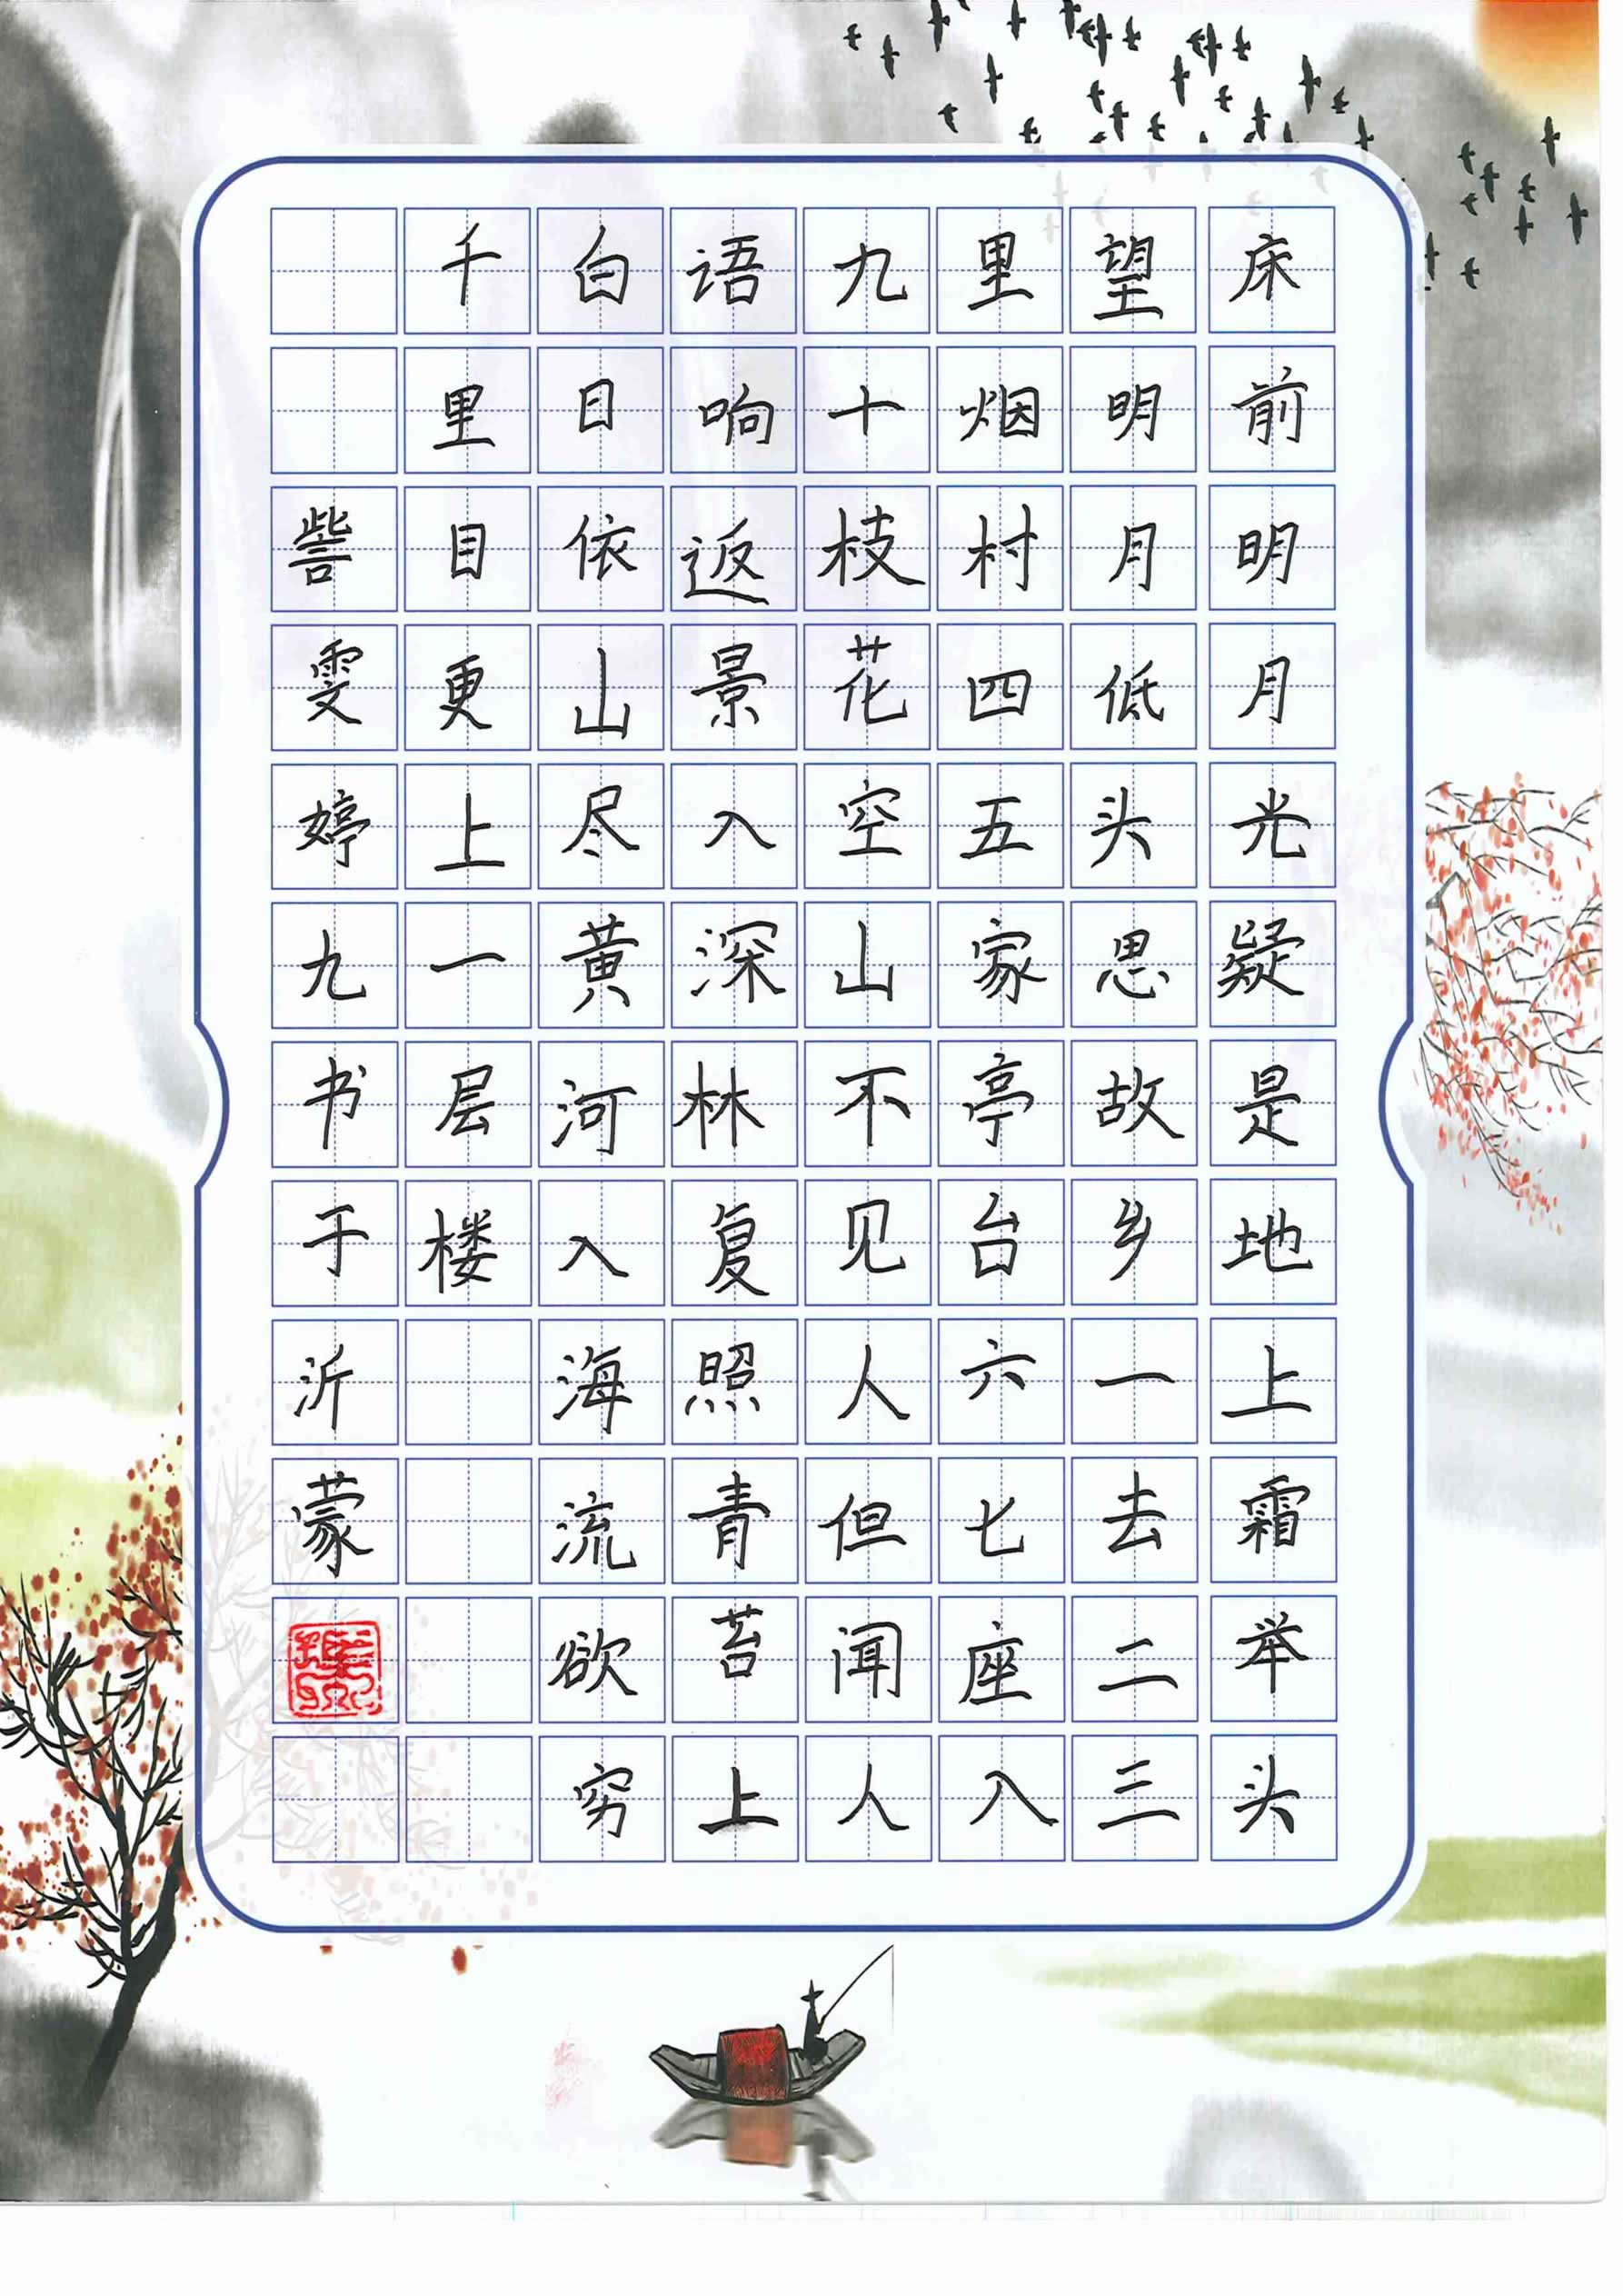 床前明月光疑是地上霜举头
望明月低头思故乡一去二三
里烟村四五家亭台六七座入
九十枝花空山不见人但闻人
语响返景入深林复照青苔上
白日依山尽黄河入海流欲穷
千里目更上一层楼
訾雯婷九书于沂蒙